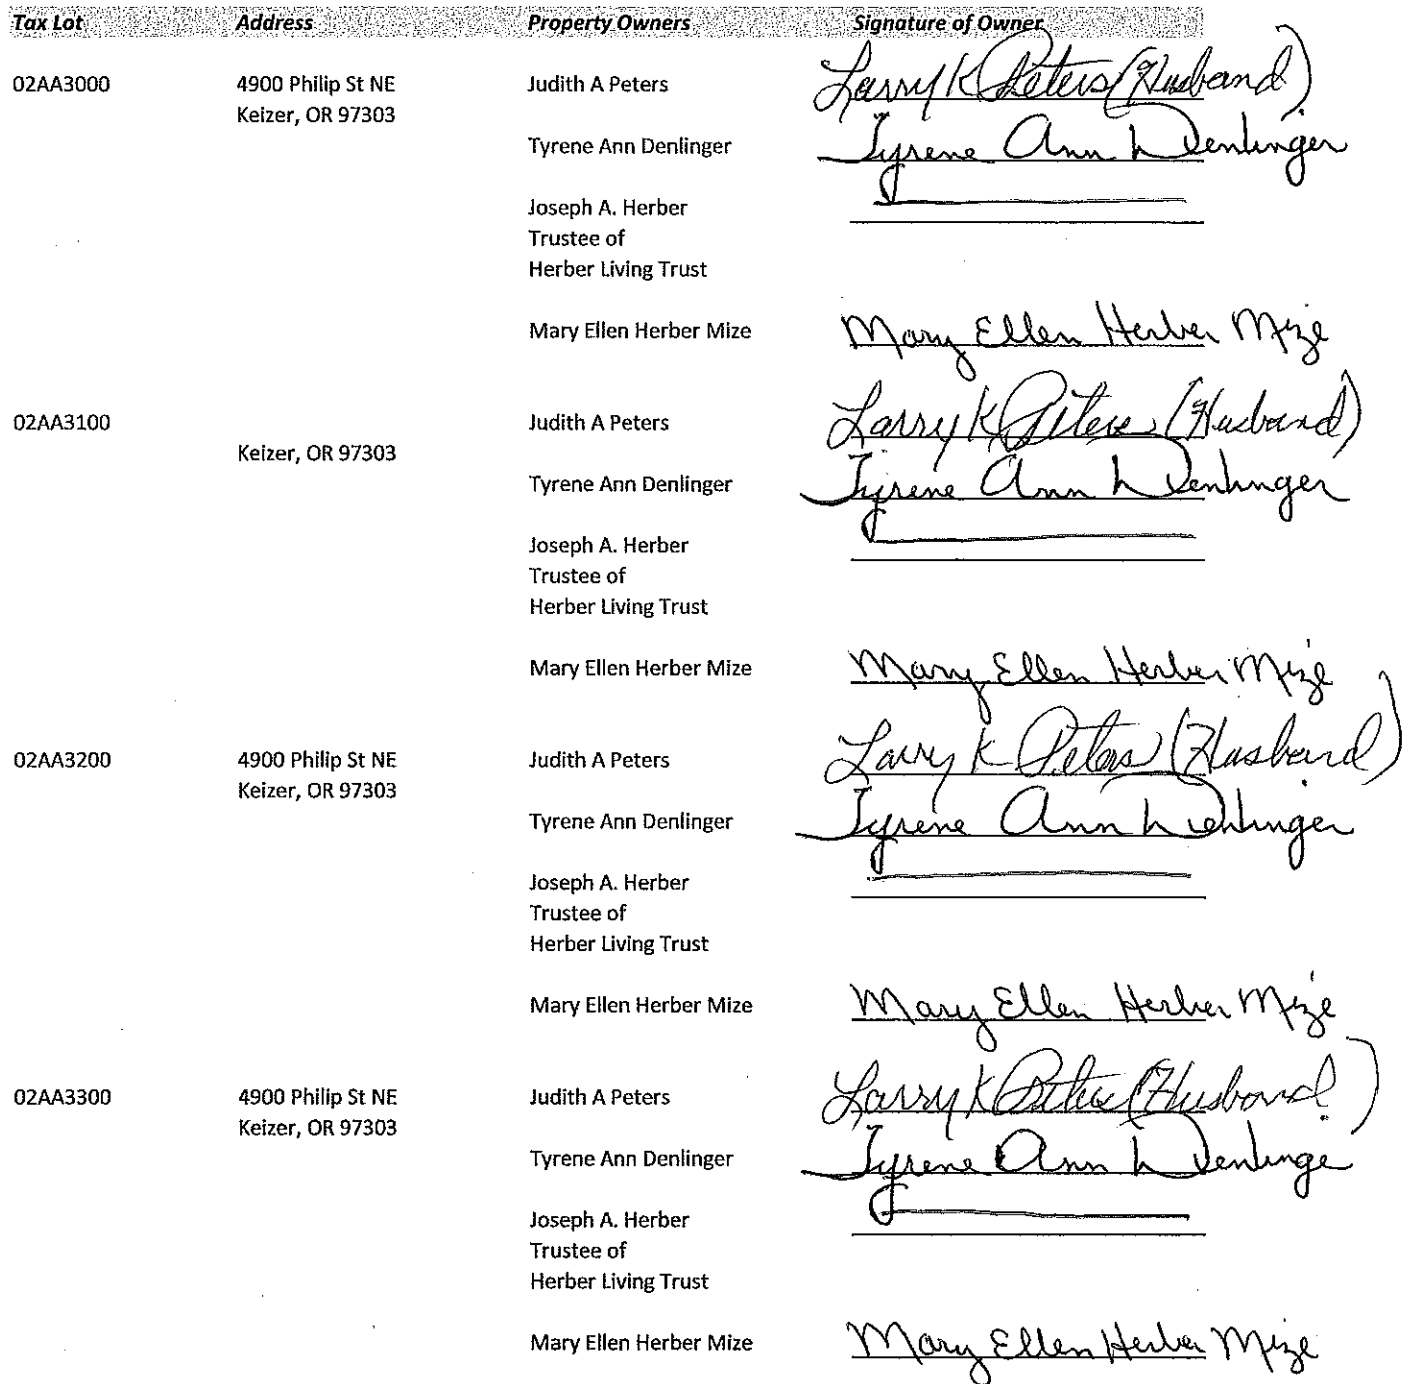 Tax Lot Address Property Owners Signature of Owner
02AA3000 4900 Philip St NE Judith A Peters Larry K Peters (Husband)
Keizer, OR 97303
Tyrene Ann Denlinger Tyrene Ann Denlinger
Joseph A. Herber
Trustee of
Herber Living Trust
Mary Ellen Herber Mize Mary Ellen Herber Mize
02AA3100 Judith A Peters Larry K Peters (Husband)
Keizer, OR 97303
Tyrene Ann Denlinger Tyrene Ann Denlinger
Joseph A. Herber
Trustee of
Herber Living Trust
Mary Ellen Herber Mize Mary Ellen Herber Mize
02AA3200 4900 Philip St NE Judith A Peters Larry K Peters (Husband)
Keizer, OR 97303
Tyrene Ann Denlinger Tyrene Ann Denlinger
Joseph A. Herber
Trustee of
Herber Living Trust
Mary Ellen Herber Mize Mary Ellen Herber Mize
02AA3300 4900 Philip St NE Judith A Peters Larry K Peters (Husband)
Keizer, OR 97303
Tyrene Ann Denlinger Tyrene Ann Denlinge
Joseph A. Herber
Trustee of
Herber Living Trust
Mary Ellen Herber Mize Mary Ellen Herber Mize